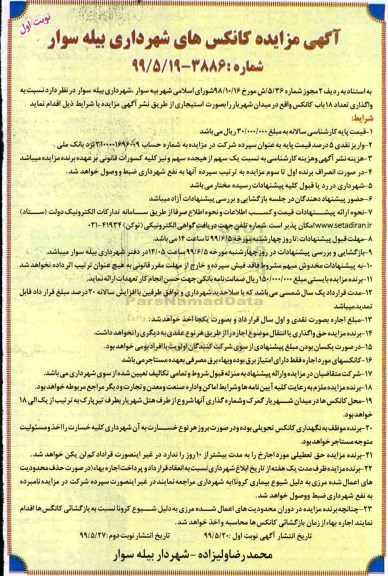 نوبت اول
آگهی مزایده کانکس های شهرداری بیله سوار
شماره : ۳۸۸۶-۹۹/۵/۱۹
به استناد به ردیف ۲ مجوز شماره ۵/۳۶/ش مورخ ۹۸/۱۰/۱۶ شورای اسلامی شهر بیله سوار ،شهرداری بیله سوار در نظر دارد نسبت به
واگذاری تعداد ۱۸ باب کانکس واقع در میدان شهریار را بصورت استیجاری از طریق نشر آگهی مزایده با شرایط ذیل اقدام نماید
شرایط:
۱-قیمت پایه کارشناسی سالانه به مبلغ ۳۰/۰۰۰/۰۰۰ ریال می باشد
۲-واریز نقدی ۵ درصد قیمت پایه به عنوان سپرده شرکت در مزایده به شماره حساب ۳۱۰۰۰۰۱۶۹۶۰۰۹ نزد بانک ملی .
۳-هزینه نشر آگهی وهزینه کارشناسی به نسبت یک سهم از هیجده سهم و نیز کلیه کسورات قانونی بر عهده برنده مزایده میباشد
۴-در صورت انصراف برنده اول تا سوم مزایده به ترتیب سپرده آنها به نفع شهرداری ضبط و وصول خواهد شد.
۵-شهرداری در رد یا قبول کلیه پیشنهادات رسیده مختار می باشد
۶-حضور پیشنهاددهندگان در جلسه بازگشایی و بررسی پیشنهادات آزاد میباشد
۷-نحوه ارائه پیشنهادات قیمت و کسب اطلاعات و نحوه اطلاع صرفا از طریق سامانه تدارکات الکترونیک دولت (ستاد)
www.setadiran.ir امکان پذیر است.شماره تلفن جهت دریافت گواهی الکترونیکی (توکن) ۴۱۹۳۴-۰۲۱
۸-مهلت قبول پیشنهادات :تا روز چهارشنبه مورخه ۹۹/۶/۵ تا ساعت ۱۴ می باشد.
۹-بازگشایی و بررسی پیشنهادات در روز چهارشنبه مورخه ۹۹/۶/۵ ساعت ۱۴:۰۵ در دفتر شهرداری بیله سوار میباشد.
۱۰-به پیشنهادات مخدوش مبهم مشروط فاقد فیش سپرده و خارج از مهلت مقرر قانونی به هیچ عنوان ترتیب اثر داده نخواهد شد.
۱۱-برنده مزایده بایستی مبلغ ۱۵۰/۰۰۰/۰۰۰ ریال ضمانت نامه بانکی جهت حسن انجام کار تعهدات ارائه نماید.
۱۲-مدت قرارداد یک سال شمسی می باشد که با صلاحدید شهرداری و توافق طرفین با افزایش سالانه ۲۰ درصد مبلغ قرار داد قابل
تمدید میباشد
۱۳-مبلغ اجاره بصورت نقدی و اول سال قرار داد و بصورت یکجا اخذ خواهد شد.
۱۴-برنده مزایده حق واگذاری یا انتقال موضوع اجاره را از طریق هر نوع عقدی به دیگری را نخواهد داشت.
۱۵-در صورت یکسان بودن مبلغ پیشنهادی از سوی شرکت کنندگان اولویت با افراد بومی خواهد بود.
۱۶-کانکسهای مورد اجاره فقط دارای امتیاز برق بوده وبهاء برق مصرفی بعهده مستاجر می باشد
۱۷-شرکت متقاضیان در مزایده و ارائه پیشنهاد به منزله قبول شروط و تمامی تکالیف تعیین شده از سوی شهرداری می باشد.
۱۸-برنده مزایده ملزم به رعایت کلیه آیین نامه ها و شرایط اماکن و اداره صنعت و معدن و تجارت و دیگر مراجع مربوطه خواهد بود.
۱۹-محل کانکس ها در میدان شهریار گمرک و شماره گذاری آنها شروع از طرف هتل شهریار بطرف تیر پارک به ترتیب از یک الی ۱۸
خواهد بود.
۲۰-برنده موظف به نگهداری کانکس تحویلی بوده و در صورت بروز هر نوع خسارت به آن شهرداری کلیه خسارت را اخذ و مسئولیت
متوجه مستاجر خواهد بود.
۲۱-برنده مزایده حق تعطیلی مورد اجاره را به مدت بیشتر از ۱۰ روز را ندارد در غیر اینصورت قراداد کم لن یکن خواهد شد.
۲۲-برنده مزایده ظرف مدت یک هفته از تاریخ ابلاغ شهرداری نسبت به انعقاد قرارداد و پرداخت اجاره بهاء(در صورت حذف محدودیت
های اعمال شده مرزی به دلیل شیوع بیماری کرونا)به شهرداری مراجعه نمایند در غیر اینصورت سپرده شرکت در مزایده نامبرده
به نفع شهرداری ضبط و وصول خواهد شد.
۲۳-چنانچه برنده مزایده در دوران محدودیت های اعمال شده مرزی به دلیل شیوع کرونا نسبت به بازگشائی کانکس ها اقدام
نمایند اجاره بهاء از زمان بازگشائی کانکس ها محاسبه و اخذ خواهد شد.
تاریخ انتشار آگهی نوبت اول : ۹۹/۵/۲۰ تاریخ انتشار نوبت دوم :۹۹/۵/۲۷
محمد رضاولیزاده -شهردار بیله سوار
ParsNamadData